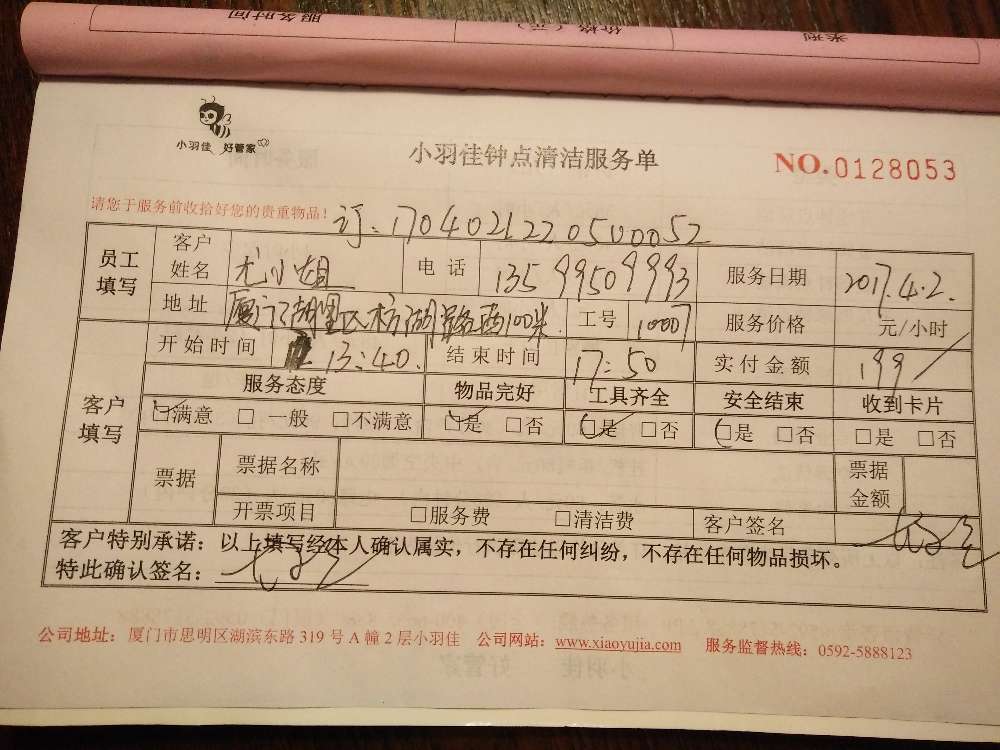 服务时间 价格（元） 类型
小羽佳 好管家
小羽佳钟点清洁服务单
NO.0128053
请您于服务前收拾好您的贵重物品！
订：1704021220500052
员工填写 客户姓名 尤小姐 电话 13599509993 服务日期 2017.4.2.
地址 厦门湖里区枋湖路西100米 工号 10007 服务价格 元/小时
客户填写 开始时间 13:40. 结束时间 17:50 实付金额 199
服务态度 物品完好 工具齐全 安全结束 收到卡片
☑满意 □一般 □不满意 ☑是 □否 ☑是 □否 ☑是 □否 □是 □否
票据 票据名称 票据金额
开票项目 □服务费 □清洁费 客户签名
客户特别承诺：以上填写经本人确认属实，不存在任何纠纷，不存在任何物品损坏。
特此确认签名：
公司地址：厦门市思明区湖滨东路 319 号 A 幢 2 层小羽佳 公司网站：www.xiaoyujia.com 服务监督热线：0592-5888123